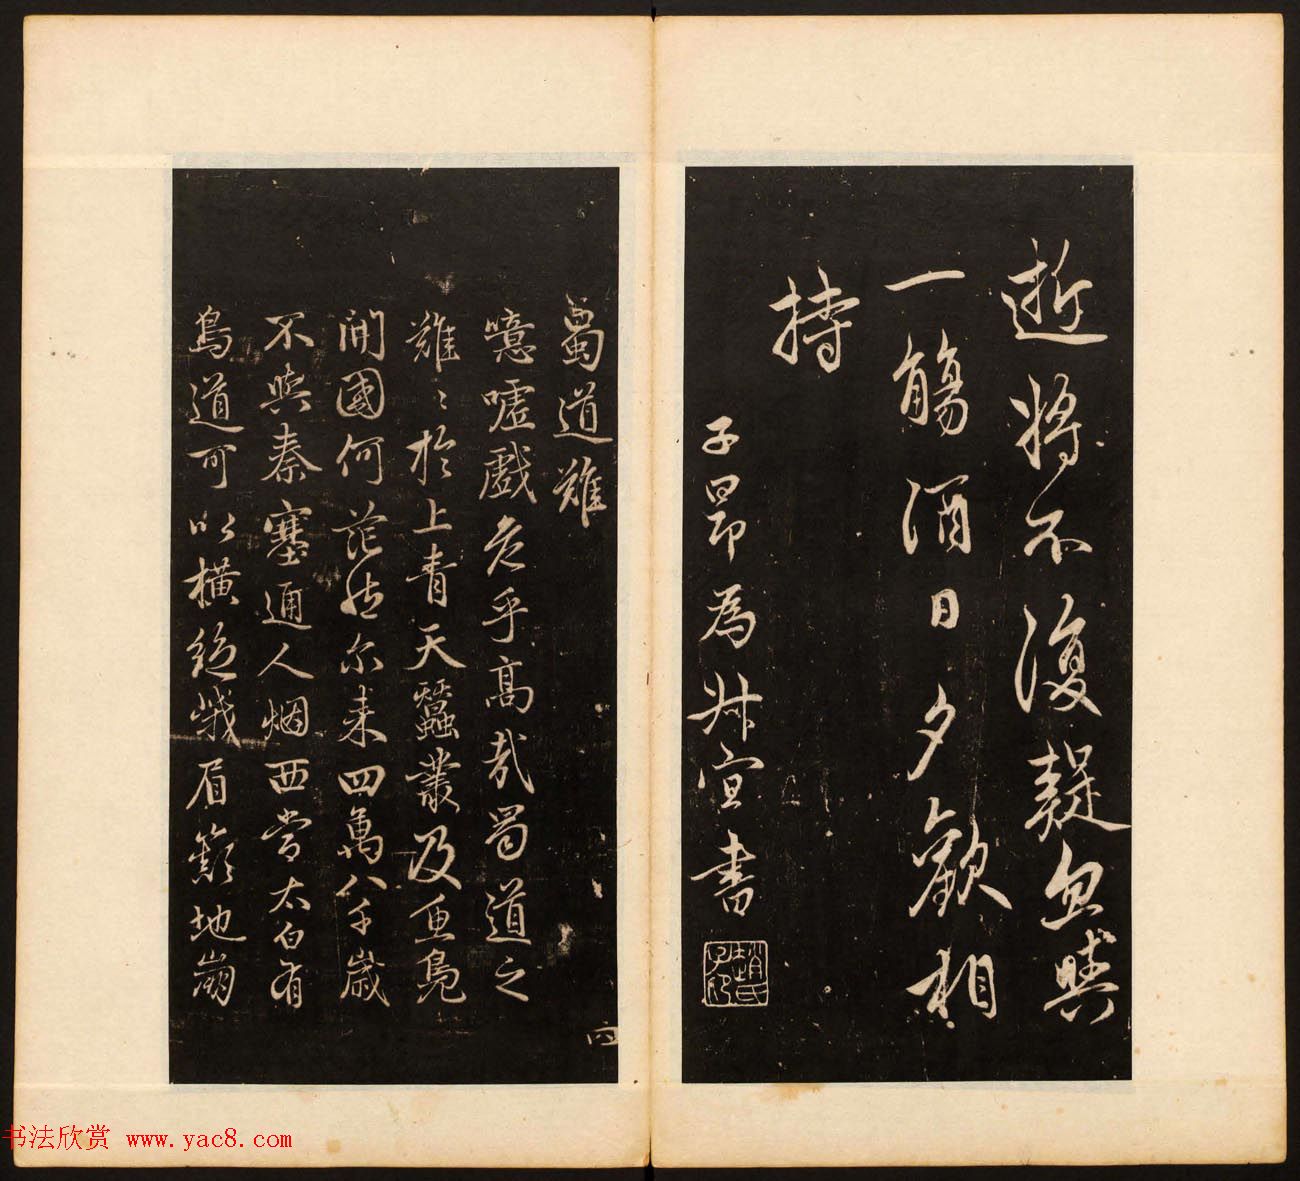 逝將不復疑忽與
一觴酒日夕歡相
持
子昂為叔宣書
趙氏子昂
蜀道難
噫嘘戲危乎高哉蜀道之
難〻於上青天蠶叢及魚鳧
開國何茫然尔来四萬八千歲
不與秦塞通人烟西當太白有
鳥道可以橫絕峨眉巔地崩
四
书法欣赏 www.yac8.com